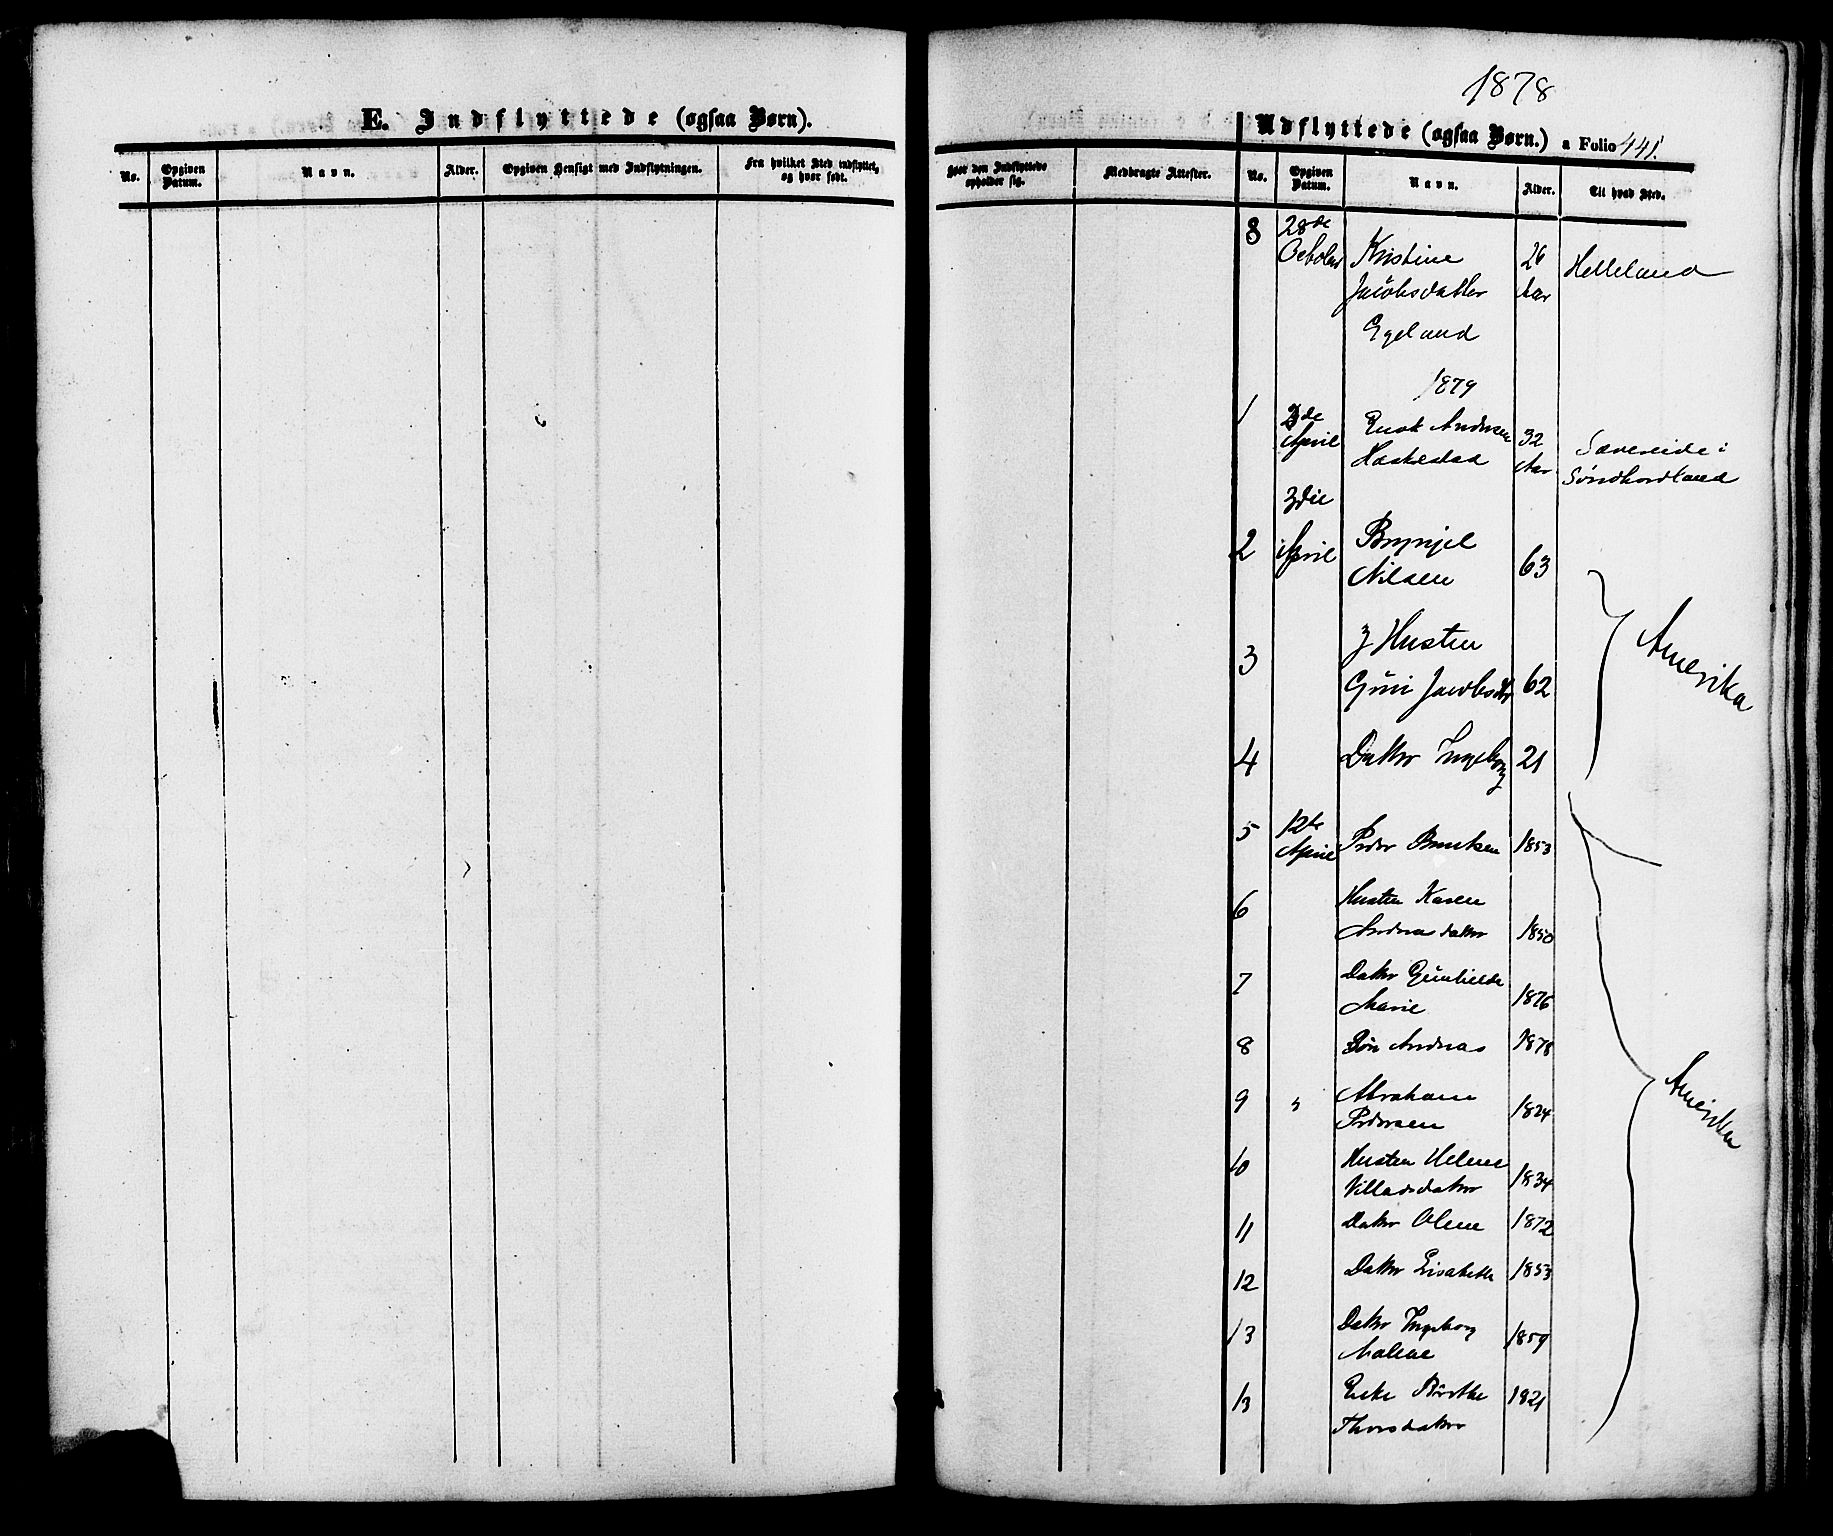 E. Indflyttede (ogsaa Børn).
No.
Opgiven Datum.
Navn.
Alder.
Opgiven Hensigt med Indflytningen.
Fra hvilket Sted indflyttet, og hvor født.
1878
Udflyttede (ogsaa Børn.) a Folio 441.
Hvor den Indflyttede opholder sig.
Medbragte Attester.
No.
Opgiven Datum.
Navn.
Alder.
Til hvad Sted.
8 28de
October Kristine 26 Helleland
Jacobsdatter Aar
Egeland
1879
1 April Enok Andersen 32 Sævereide i
Aar Søndhordland
3die
2 April Brynjel
Nilsen 63
3 Hustru
Guri Jacobsdtr 62
Amerika
4 Datter Ingeborg 21
5 12te
April Peder Bentsen 1853
6 Hustru Karen
Andreasdatter 1850
7 Datter Gunhilde
Marie 1876
8 Søn Andreas 1878
9 " Abraham
Pedersen 1824
Amerika
10 Hustru Helene
Villadsdatter 1834
11 Datter Olene 1872
12 Datter Lisabeth 1853
13 Datter Ingeborg
Malene 1859
13 Enke Børthe 1821
Thorsdatter